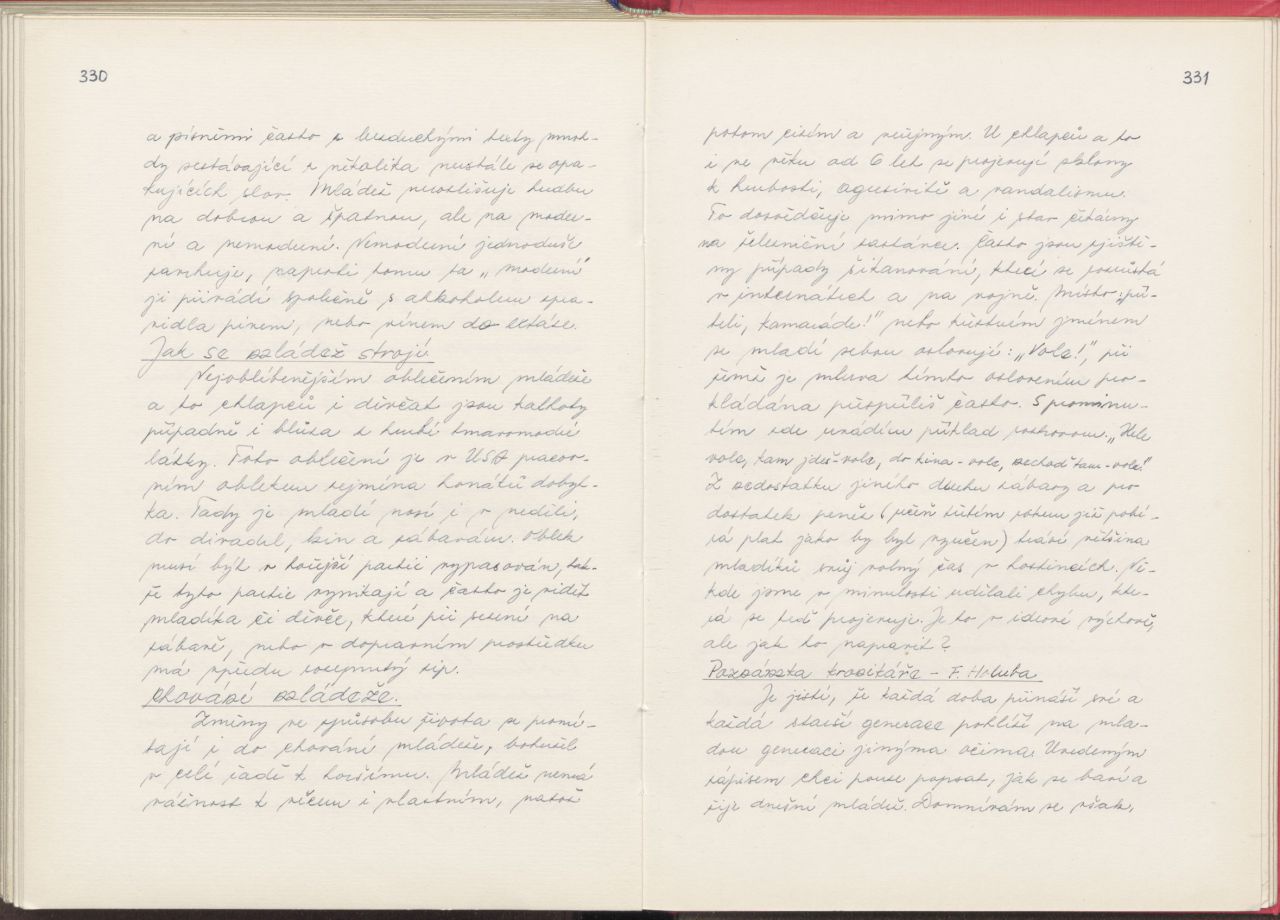 330
a písněmi často s bezduchými texty mnoh-
dy sestávající z několika neustále se opa-
kujících slov. Mládež nerozlišuje hudbu
na dobrou a špatnou, ale na moder-
ní a nemoderní. Nemoderní jednoduše
zavrhuje, naproti tomu ta „moderní"
ji přivádí společně s alkoholem zpra-
vidla pivem, nebo vínem do extáze.
Jak se mládež strojí.
Nejoblíbenějším oblečením mládeže
a to chlapců i děvčat jsou kalhoty
případně i blůza z hrubé tmavomodré
látky. Toto oblečení je v USA pracov-
ním oblekem zejména honáků dobyt-
ka. Tady je mladí nosí i v neděli,
do divadel, kin a zábavám. Oblek
musí být v hořejší partii vypasován, tak-
že tyto partie vynikají a často je vidět
mladíka či děvče, které při sezení na
zábavě, nebo v dopravním prostředku
má vpředu rozepnutý zip.
Chování mládeže.
Změny ve způsobu života se promí-
tají i do chování mládeže, bohužel
v celé řadě k horšímu. Mládež nemá
vážnost k věcem i vlastním, natož
331
potom cizím a veřejným. U chlapců a to
i ve věku od 6 let se projevují sklony
k hrubosti, agresivitě a vandalismu.
To dosvědčuje mimo jiné i stav čekárny
na železniční zastávce. Často jsou zjiště-
ny případy šikanování, které se rozrůstá
v internátech a na vojně. Místo: „pří-
teli, kamaráde!" nebo křestním jménem
se mladí sebou oslovují: „Vole!", při
čemž je mluva tímto oslovením pro-
kládána přespříliš často. S prominu-
tím zde uvádím příklad rozhovoru: „Hele
vole, tam jdeš-vole, do kina-vole, nechoď tam-vole!"
Z nedostatku jiného druhu zábavy a pro
dostatek peněz (učeň třetím rokem již pobí-
rá plat jako by byl vyučen) tráví většina
mladíků svůj volný čas v hostincích. Ně-
kde jsme v minulosti udělali chybu, kte-
rá se teď projevuje. Je to v ideové výchově,
ale jak to napravit?
Poznámka kronikáře – F. Holuba
Je jisté, že každá doba přináší své a
každá starší generace pohlíží na mla-
dou generaci jinýma očima. Uvedeným
zápisem chci pouze popsat, jak se baví a
žije dnešní mládež. Domnívám se však,